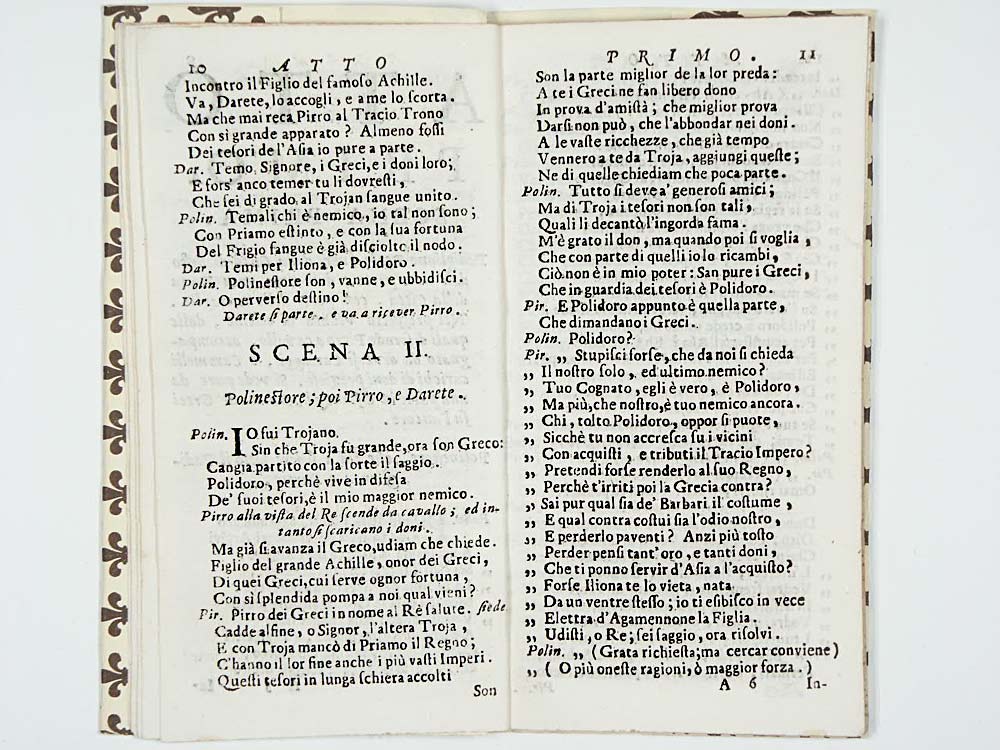 10 ATTO
Incontro il Figlio del famoso Achille.
Va, Darete, lo accogli, e a me lo scorta.
Ma che mai reca Pirro al Tracio Trono
Con sì grande apparato? Almeno fossi
Dei tesori de l'Asia io pure a parte.
Dar. Temo, Signore, i Greci, e i doni loro;
E fors' anco temer tu li dovresti,
Che sei di grado al Trojan sangue unito.
Polin. Temali chi è nemico, io tal non sono;
Con Priamo estinto, e con la sua fortuna
Del Frigio sangue è già disciolto il nodo.
Dar. Temi per Iliona, e Polidoro.
Polin. Polinestore son, vanne, e ubbidisci.
Dar. O perverso destino!
Darete si parte, e va a ricever Pirro.
SCENA II.
Polinestore; poi Pirro, e Darete.
Polin. IO fui Trojano.
Sin che Troja fu grande, ora son Greco:
Cangia partito con la sorte il saggio.
Polidoro, perchè vive in difesa
De' suoi tesori, è il mio maggior nemico.
Pirro alla vista del Re scende da cavallo; ed in-
tanto si scaricano i doni.
Ma già si avanza il Greco, udiam che chiede.
Figlio del grande Achille, onor dei Greci,
Di quei Greci, cui serve ognor fortuna,
Con sì splendida pompa a noi qual vieni?
Pir. Pirro dei Greci in nome al Rè salute. siede
Cadde alfine, o Signor, l'altera Troja,
E con Troja mancò di Priamo il Regno;
C'hanno il lor fine anche i più vasti Imperi.
Questi tesori in lunga schiera accolti
Son
PRIMO. 11
Son la parte miglior de la lor preda:
A te i Greci ne fan libero dono
In prova d'amistà; che miglior prova
Darsi non può, che l'abbondar nei doni.
A le vaste ricchezze, che già tempo
Vennero a te da Troja, aggiungi queste;
Ne di quelle chiediam che poca parte.
Polin. Tutto si deve a' generosi amici;
Ma di Troja i tesori non son tali,
Quali li decantò l'ingorda fama.
M'è grato il don, ma quando poi si voglia,
Che con parte di quelli io lo ricambi,
Ciò non è in mio poter: San pure i Greci,
Che in guardia dei tesori è Polidoro.
Pir. E Polidoro appunto è quella parte,
Che dimandano i Greci.
Polin. Polidoro?
Pir. ,, Stupisci forse, che da noi si chieda
,, Il nostro solo, ed ultimo nemico?
,, Tuo Cognato, egli è vero, è Polidoro,
,, Ma più, che nostro, è tuo nemico ancora.
,, Chi, tolto Polidoro, oppor si puote,
,, Sicchè tu non accresca su i vicini
,, Con acquisti, e tributi il Tracio Impero?
,, Pretendi forse renderlo al suo Regno,
,, Perchè t'irriti poi la Grecia contra?
,, Sai pur qual sia de' Barbari il costume,
,, E qual contra costui sia l'odio nostro,
,, E perderlo paventi? Anzi più tosto
,, Perder pensi tant'oro, e tanti doni,
,, Che ti ponno servir d'Asia a l'acquisto?
,, Forse Iliona te lo vieta, nata
,, Da un ventre stesso; io ti esibisco in vece
,, Elettra d'Agamennone la Figlia.
,, Udisti, o Re; sei saggio, ora risolvi.
Polin. ,, (Grata richiesta; ma cercar conviene)
,, (O più oneste ragioni, ò maggior forza.)
A 6 In-